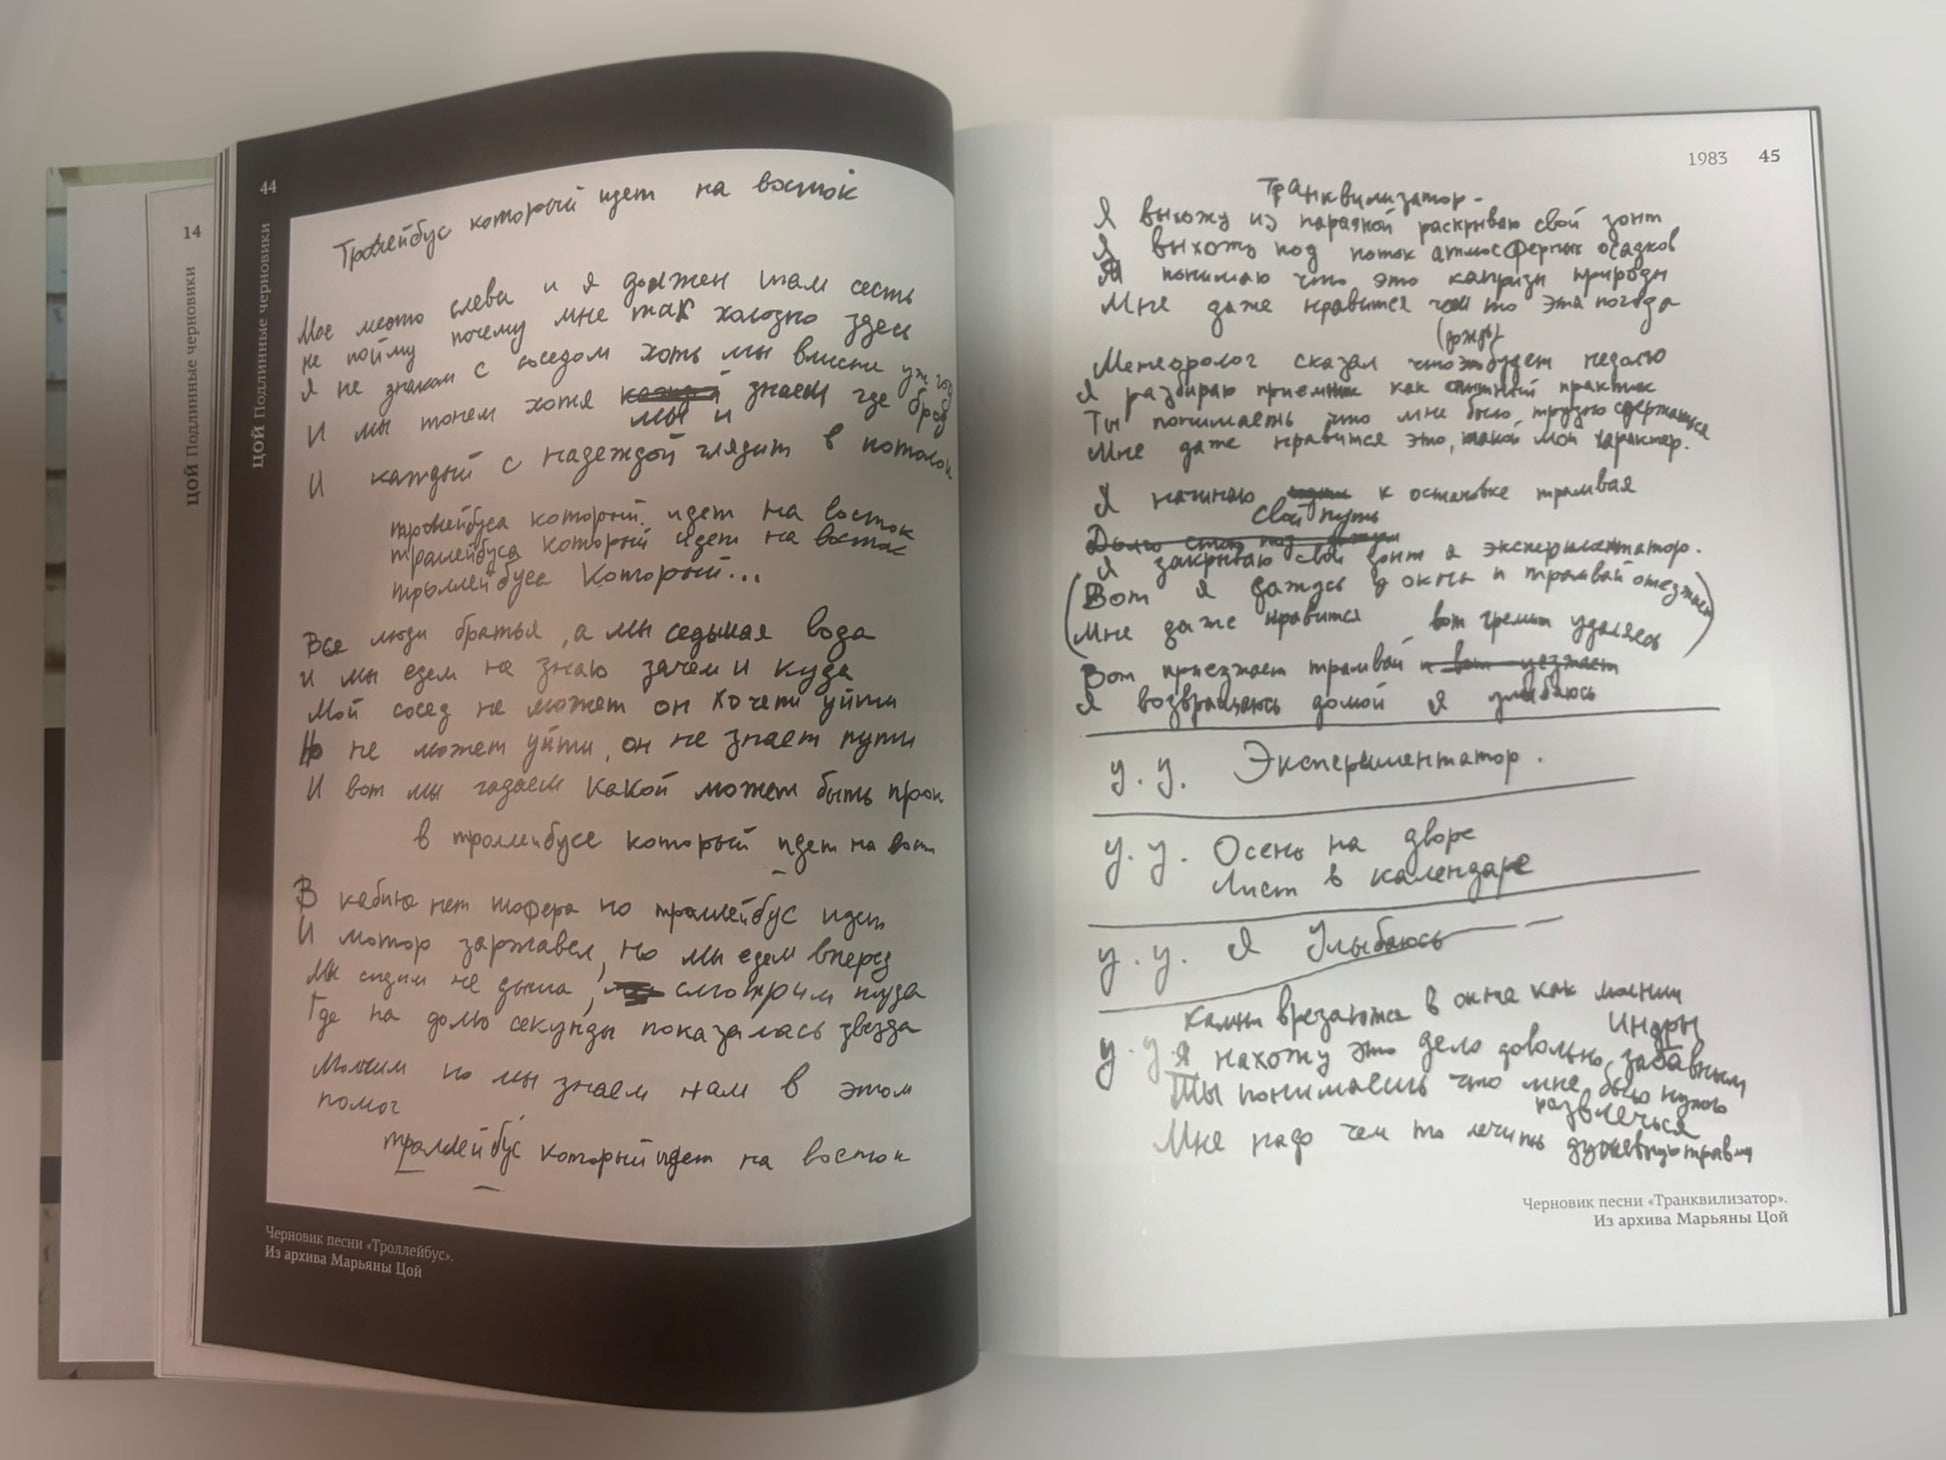 14
ЦОЙ Подлинные черновики
44
ЦОЙ Подлинные черновики
Тролейбус который идет на восток
Мое место слева и я должен там сесть
не пойму почему мне так холодно здесь
Я не знаком с соседом хоть мы вместе уж год
И мы тонем хотя каждый знаем где брод
мы и
И каждый с надеждой глядит в потолок
тролейбуса который идет на восток
тралейбуса который идет на восток
троллейбуса который...
Все люди братья, а мы седьмая вода
и мы едем на знаю зачем и куда
Мой сосед не может он хочет уйти
Но не может уйти, он не знает пути
И вот мы гадаем какой может быть прок
в троллейбусе который идет на вост
В кабине нет шофера но троллейбус идет
И мотор заржавел, но мы едем вперед
Мы сидим не дыша, смотрим туда
Где на долю секунды показалась звезда
Молчим но мы знаем нам в этом
помог
троллейбус который идет на восток
Черновик песни «Троллейбус».
Из архива Марьяны Цой
1983 45
Транквилизатор.
Я выхожу из парадной раскрываю свой зонт
Я выхожу под поток атмосферных осадков
Я понимаю что это капризы природы
Мне даже нравится чем то эта погода
(дождь)
Метеоролог сказал что будет недолго
Я разбираю приемник как опытный практик
Ты понимаешь что мне было трудно сдержаться
Мне даже нравится это, такой мой характер.
Я начинаю идти к остановке трамвая
свой путь
Долго стою под дождем
Я закрываю свой зонт я экспериментатор.
(Вот я дождь окна и трамвай отезжает
Мне даже нравится вот гремит удаляясь)
Вот приезжает трамвай и вот уезжает
Я возвращаюсь домой я улыбаюсь
у. у. Экспериментатор.
у. у. Осень на дворе
Лист в календаре
у. у. Я Улыбаюсь
Камни врезаются в окна как молнии
Индры
у. у. Я нахожу это дело довольно забавным
Ты понимаешь что мне было нужно
развлечься
Мне надо чем то лечить душевную травму
Черновик песни «Транквилизатор».
Из архива Марьяны Цой